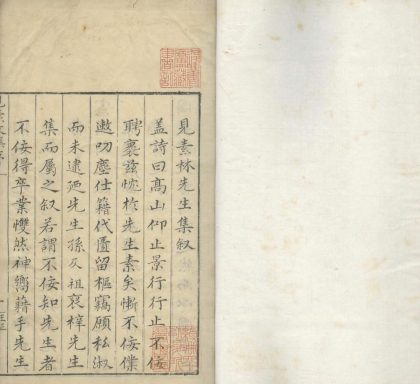 見素林先生集叙
蓋詩曰高山仰止景行行止不佞
聘褱茲悰於先生素矣慚不佞僕
遬叨塵仕籍代匱留樞竊願私淑
而未逮廼先生孫及祖裒梓先生
集而屬之叙若謂不佞知先生者
不佞得卒業戄然神嚮藉手先生